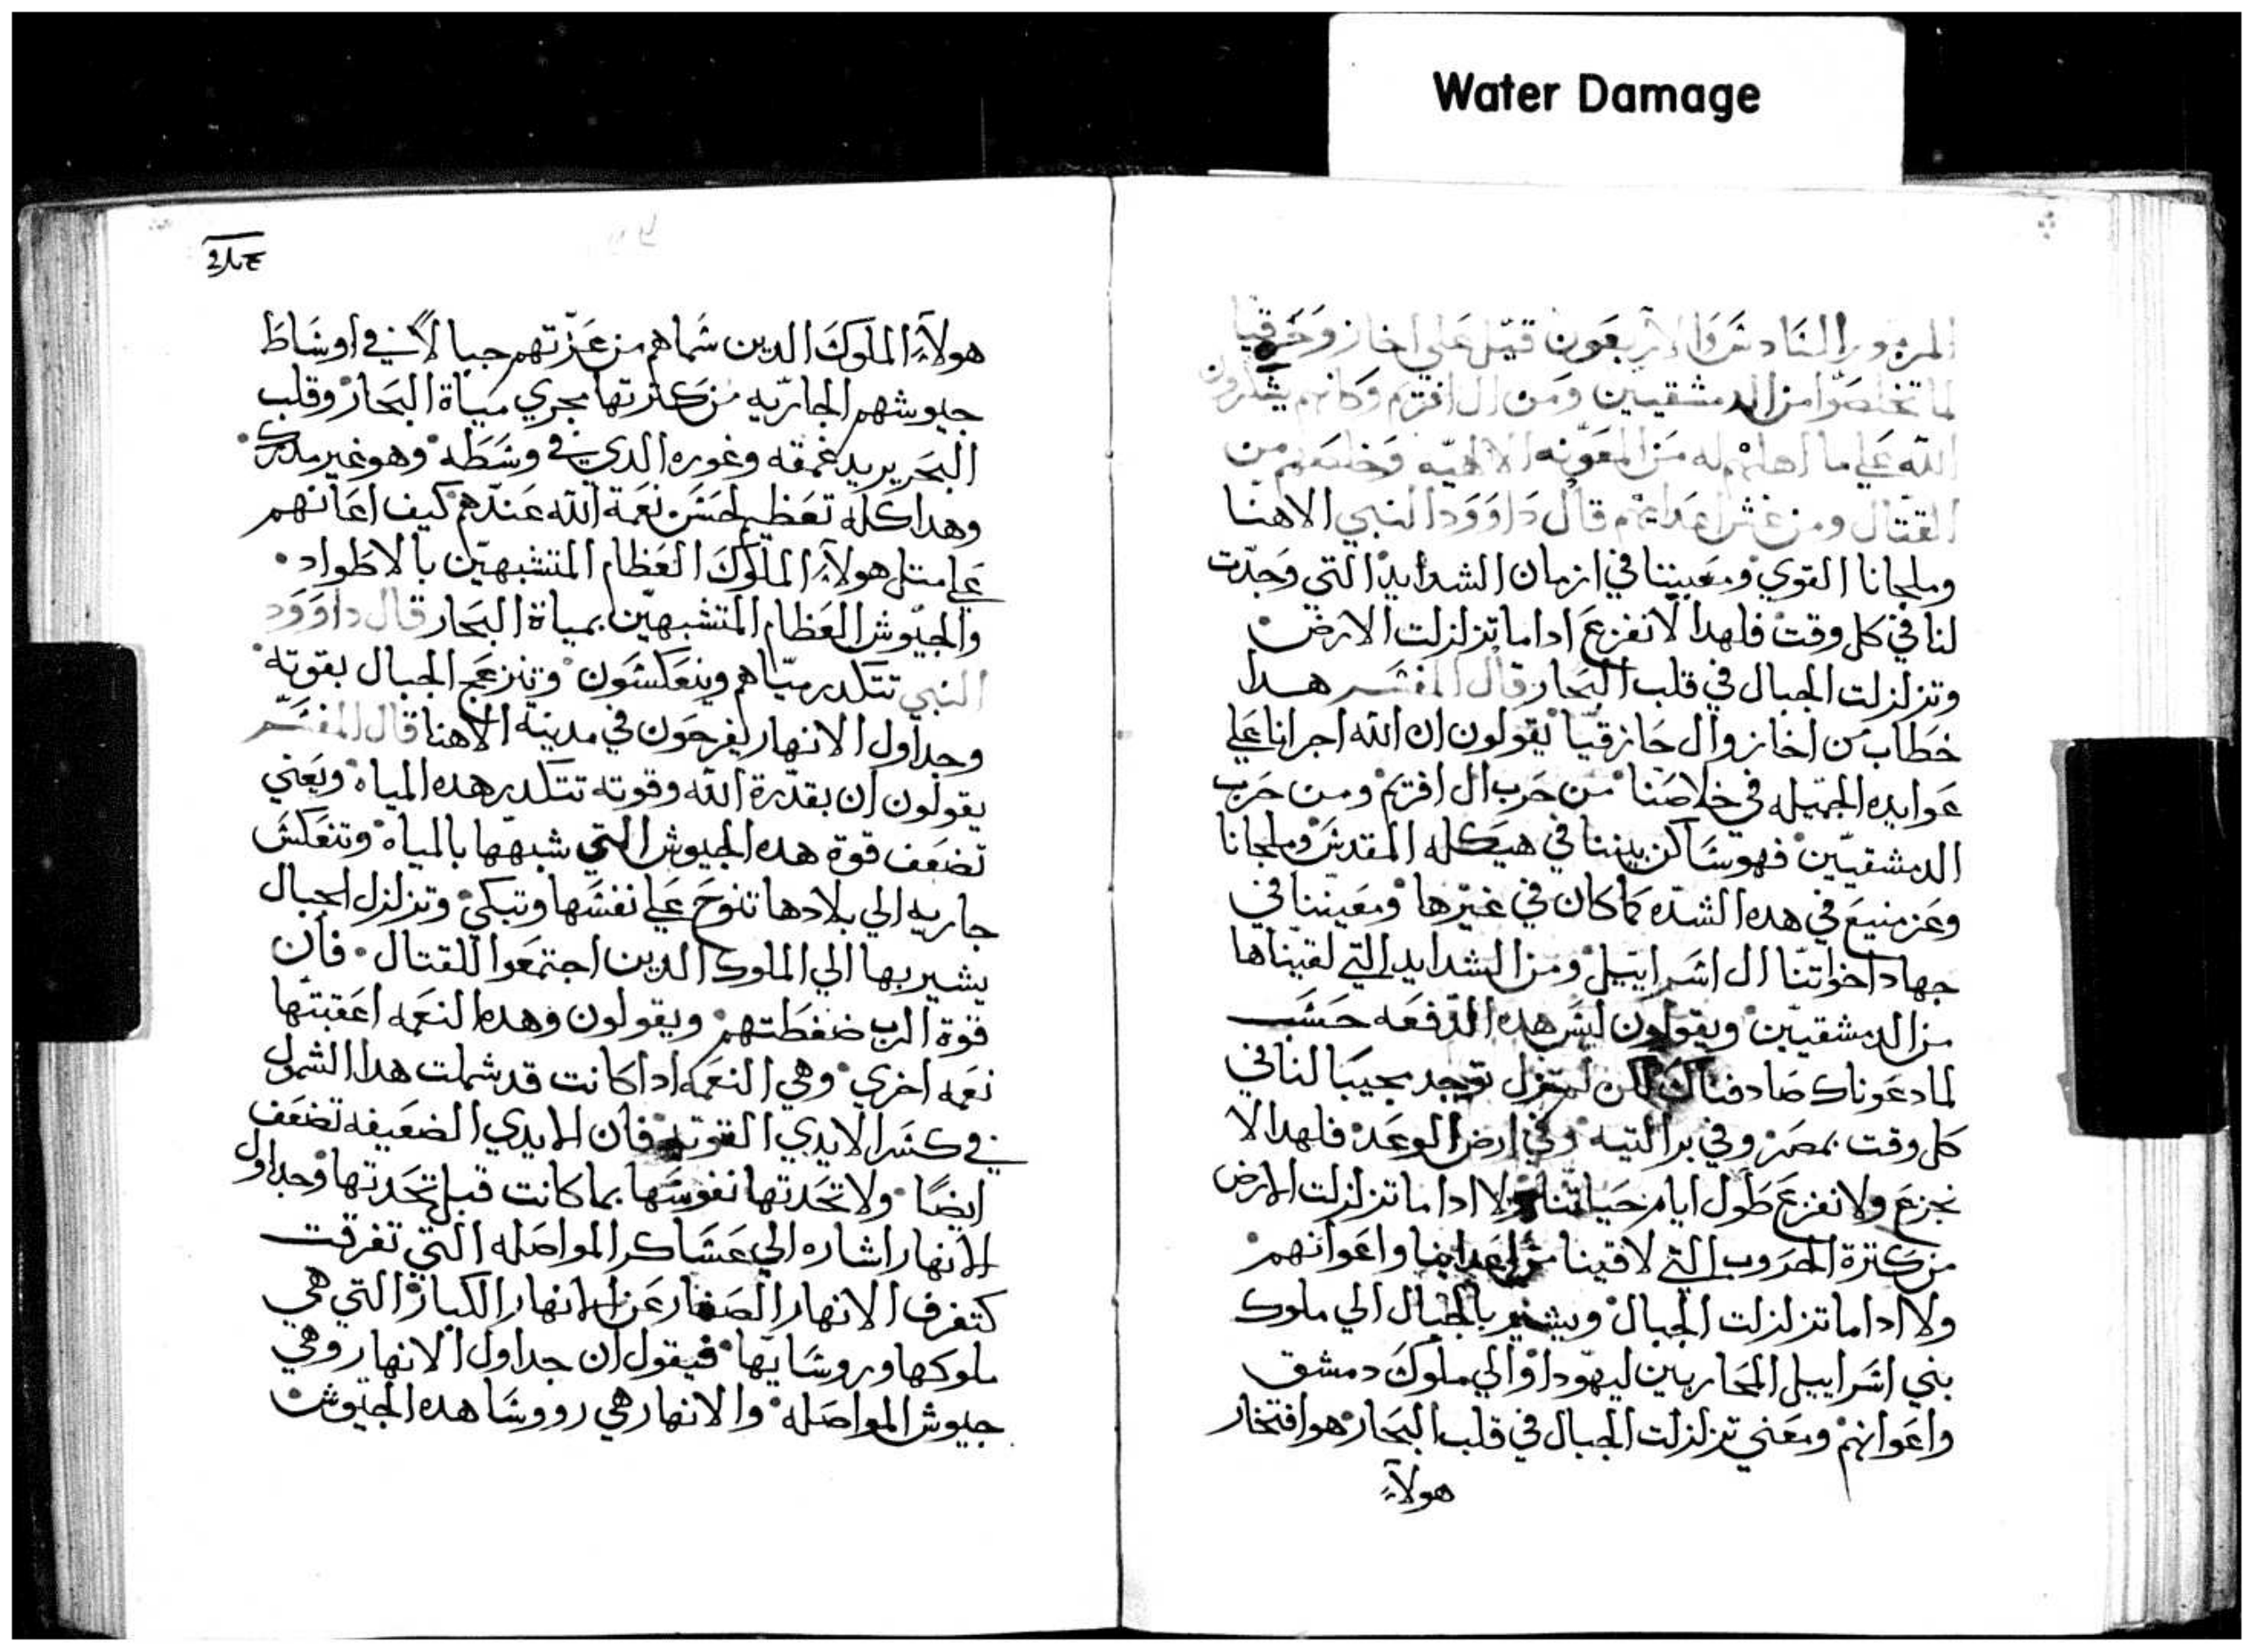 Water Damage
المزمور السادس والاربعون قيل علي اخاز وحزقيا
لما تخلصوا من الدمشقيين ومن ال افريم وكانهم يشكرون
الله علي ما اهلهم له من المعونه الالهيه وخلصهم من
القتال ومن غش اعدايهم قال داوود النبي الاهنا
وملجانا القوي ومعيننا في ازمان الشدايد التي وجدت
لنا في كل وقت فلهدا لا نفزع ادا ما تزلزلت الارض
وتزلزلت الجبال في قلب البحار قال المفسر هدا
خطاب من اخاز وال حازقيا يقولون ان الله اجرانا علي
عوايده الجميله في خلاصنا من حرب ال افريم ومن حرب
الدمشقيين فهو ساكن بيننا في هيكله المقدس وملجانا
وعز منيع في هده الشده كما كان في غيرها ومعيننا في
جهاد اخواتنا ال اسراييل ومن الشدايد التي لقيناها
من الدمشقيين ويقولون ليس هده الدفعه حسب
لما دعوناك صادفناك لكن لم تزل توجد مجيبا لنا في
كل وقت بمصر وفي بر التيه وفي ارض الوعد فلهدا لا
نجزع ولا نفزع طول ايام حياتنا ولا ادا ما تزلزلت الارض
من كترة الحروب التي لاقينا من اعداينا واعوانهم
ولا ادا ما تزلزلت الجبال ويشير بالجبال الي ملوك
بني اسراييل المحاربين ليهودا والي ملوك دمشق
واعوانهم ومعني تزلزلت الجبال في قلب البحار هو افتخار
هولاء
هولاء الملوك الدين سماهم من عزتهم جبالا في اوساط
جيوشهم الجاريه من كترتها مجري مياة البحار وقلب
البحر يريد غمقه وغوره الدي في وسطه وهو غير مدرك
وهدا كله تعظيم لحسن نعمة الله عندهم كيف اعانهم
علي متل هولاء الملوك العظام المتشبهين بالاطواد
والجيوش العظام المتشبهين بمياة البحار قال داوود
النبي تتكدر مياهم وينعكسون وتنزعج الجبال بقوته
وجداول الانهار يفرحون في مدينة الاهنا قال المفسر
يقولون ان بقدرة الله وقوته تتكدر هده المياه ويعني
تضعف قوة هده الجيوش التي شبهها بالمياه وتنعكس
جاريه الي بلادها تنوح علي نفسها وتبكي وتزلزل الجبال
يشير بها الي الملوك الدين اجتمعوا للقتال فان
قوة الرب ضغطتهم ويقولون وهده النعمه اعقبتها
نعمه اخري وهي النعمه ادا كانت قد شملت هدا الشمول
في كسر الايدي القويه فان الايدي الضعيفه تضعف
ايضا ولا تحدتها نفوسها بما كانت قبل تحدتها وجداول
الانهار اشاره الي عساكر المواصله التي تفرقت
كتفرق الانهار الصغار عن الانهار الكبار التي هي
ملوكها وروسايها فيقول ان جداول الانهار وهي
جيوش المواصله والانهار هي رووسا هده الجيوش